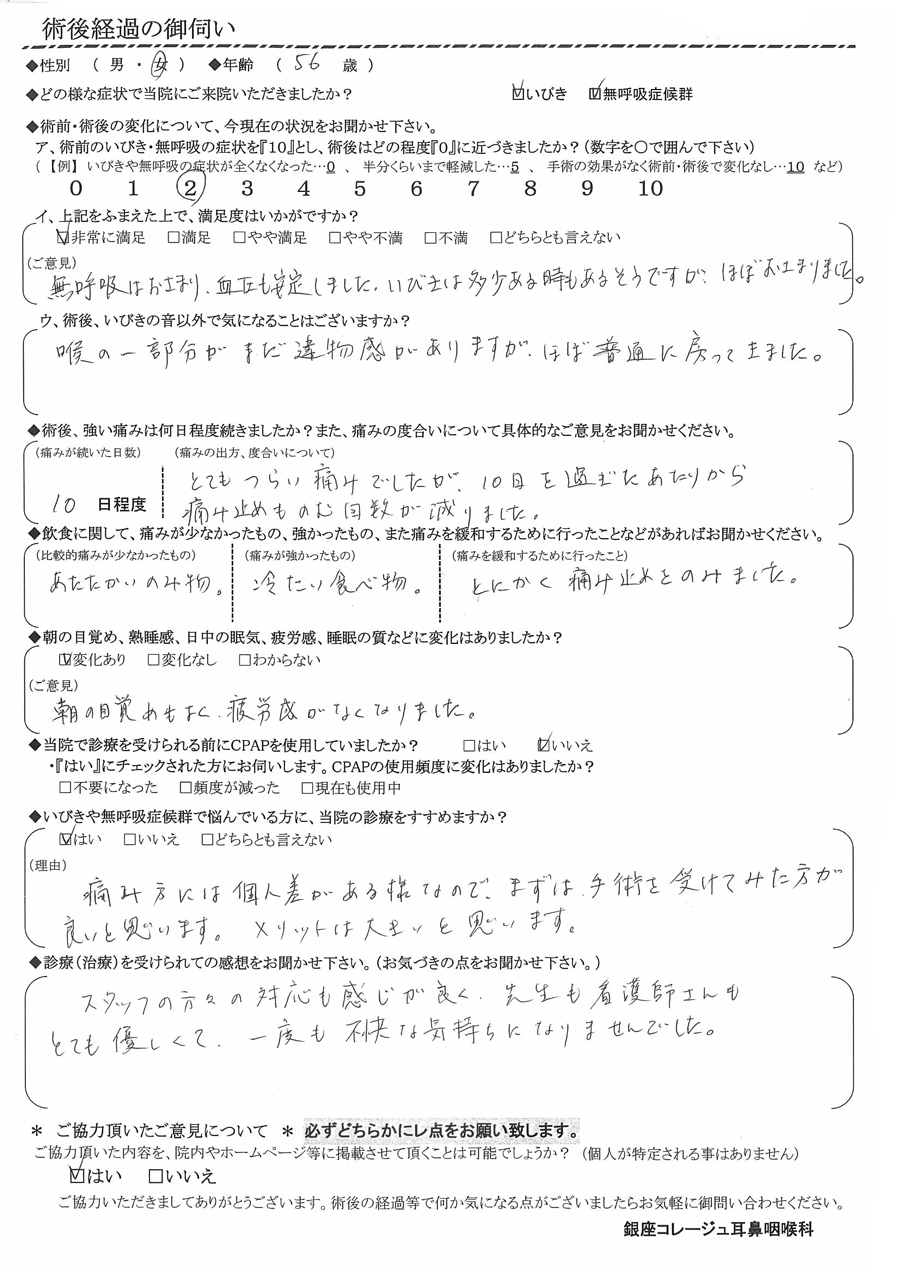 術後経過の御伺い
◆性別 ( 男 ・ 女 ) ◆年齢 ( 56 歳 )
◆どの様な症状で当院にご来院いただきましたか? ☑いびき ☑無呼吸症候群
◆術前・術後の変化について、今現在の状況をお聞かせ下さい。
ア、術前のいびき・無呼吸の症状を『10』とし、術後はどの程度『0』に近づきましたか?(数字を○で囲んで下さい)
(【例】 いびきや無呼吸の症状が全くなくなった…0 、 半分くらいまで軽減した…5 、 手術の効果がなく術前・術後で変化なし…10 など)
0 1 2 3 4 5 6 7 8 9 10
イ、上記をふまえた上で、満足度はいかがですか?
☑非常に満足 □満足 □やや満足 □やや不満 □不満 □どちらとも言えない
(ご意見)
無呼吸はおさまり、血圧も安定しました。いびきは多少ある時もあるそうですが、ほぼおさまりました。
ウ、術後、いびきの音以外で気になることはございますか?
喉の一部分がまだ違物感がありますが、ほぼ普通に戻ってきました。
◆術後、強い痛みは何日程度続きましたか?また、痛みの度合いについて具体的なご意見をお聞かせください。
(痛みが続いた日数) (痛みの出方、度合いについて)
とてもつらい痛みでしたが、10日を過ぎたあたりから
10 日程度 痛み止めものむ回数が減りました。
◆飲食に関して、痛みが少なかったもの、強かったもの、また痛みを緩和するために行ったことなどがあればお聞かせください。
(比較的痛みが少なかったもの) (痛みが強かったもの) (痛みを緩和するために行ったこと)
あたたかいのみ物。 冷たい食べ物。 とにかく痛み止めをのみました。
◆朝の目覚め、熟睡感、日中の眠気、疲労感、睡眠の質などに変化はありましたか?
☑変化あり □変化なし □わからない
(ご意見)
朝の目覚めもよく、疲労感がなくなりました。
◆当院で診療を受けられる前にCPAPを使用していましたか? □はい ☑いいえ
・『はい』にチェックされた方にお伺いします。CPAPの使用頻度に変化はありましたか?
□不要になった □頻度が減った □現在も使用中
◆いびきや無呼吸症候群で悩んでいる方に、当院の診療をすすめますか?
☑はい □いいえ □どちらとも言えない
(理由)
痛み方には個人差がある様なので、まずは、手術を受けてみた方が
良いと思います。 メリットは大きいと思います。
◆診療(治療)を受けられての感想をお聞かせ下さい。(お気づきの点をお聞かせ下さい。)
スタッフの方々の対応も感じが良く、先生も看護師さんも
とても優しくて、一度も不快な気持ちになりませんでした。
* ご協力頂いたご意見について * 必ずどちらかにレ点をお願い致します。
ご協力頂いた内容を、院内やホームページ等に掲載させて頂くことは可能でしょうか? (個人が特定される事はありません)
☑はい □いいえ
ご協力いただきましてありがとうございます。術後の経過等で何か気になる点がございましたらお気軽に御問い合わせください。
銀座コレージュ耳鼻咽喉科